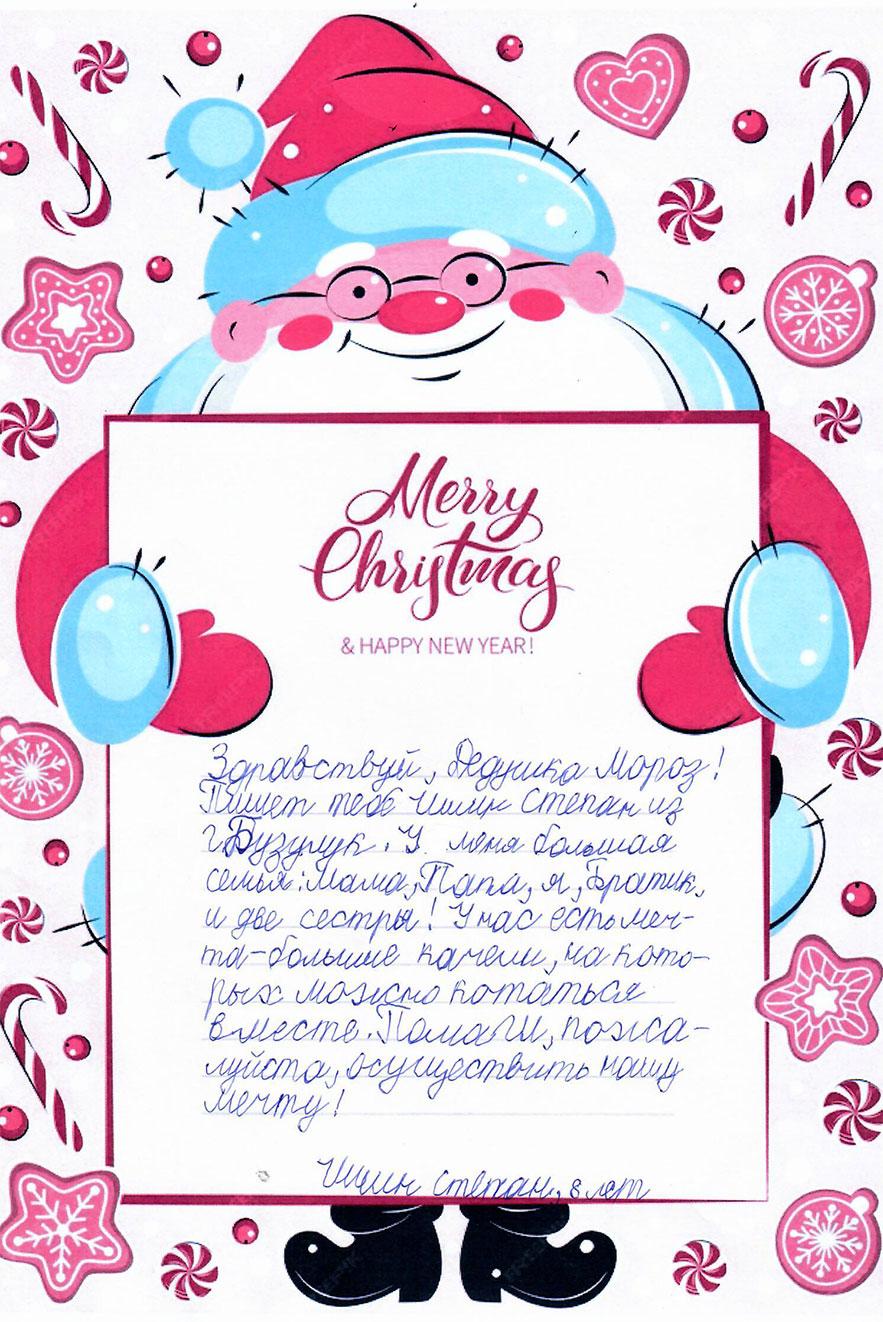 Merry
Christmas
& HAPPY NEW YEAR!
Здравствуй, Дедушка Мороз!
Пишет тебе Ишин Степан из
г. Бузулук. У меня большая
семья: Мама, Папа, я, Братик,
и две сестры! У нас есть меч-
та-большие качели, на кото-
рых можно кататься
вместе. Помаги, пожа-
луйста, осуществить нашу
мечту!
Ишин Степан, 8 лет